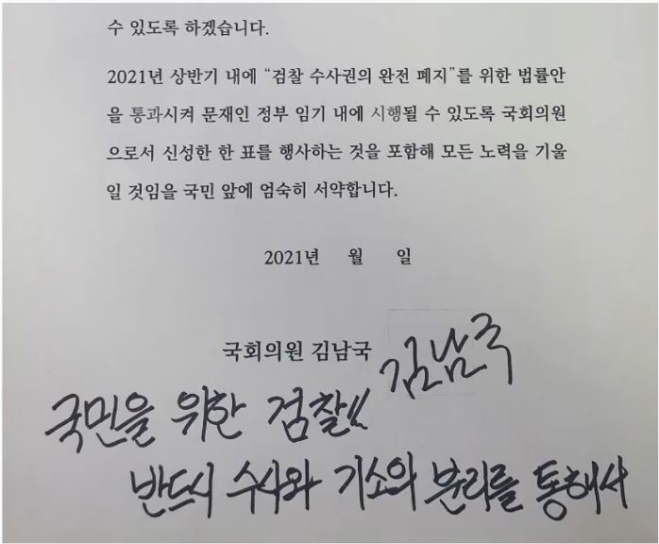 수 있도록 하겠습니다.
2021년 상반기 내에 “검찰 수사권의 완전 폐지”를 위한 법률안
을 통과시켜 문재인 정부 임기 내에 시행될 수 있도록 국회의원
으로서 신성한 한 표를 행사하는 것을 포함해 모든 노력을 기울
일 것임을 국민 앞에 엄숙히 서약합니다.
2021년 월 일
국회의원 김남국 김남국
국민을 위한 검찰!!
반드시 수사와 기소의 분리를 통해서